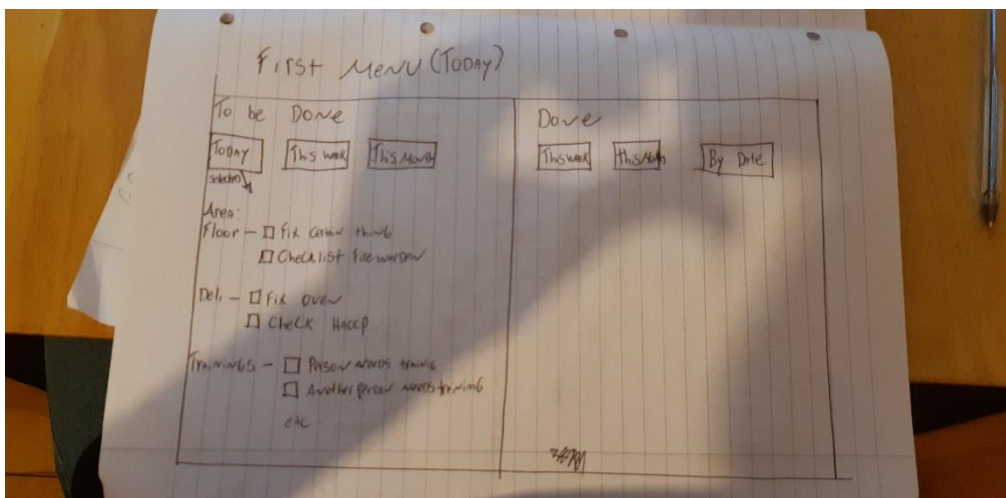 First Menu (Today)
To be Done
Today
This week
This Month
selected
Area:
Floor - Fix certain thing
Checklist Fire warden
Deli - Fix oven
Check HACCP
Trainings - Person needs training
Another person needs training
etc
Done
This week
this Month
By Date